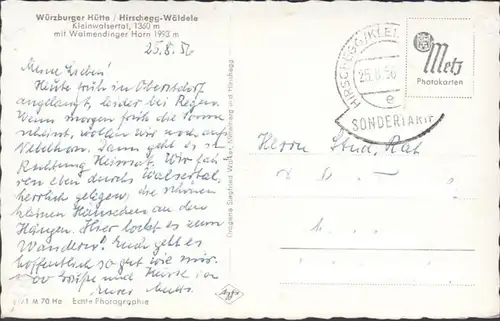 Würzburger Hütte / Hirschegg-Wäldele
Kleinwalsertal, 1360 m
mit Walmendinger Horn 1993 m
25.8.56
Meine Lieben!
Heute früh in Oberstdorf
angelangt, leider bei Regen.
Wenn morgen früh die Sonne
scheint, wollen wir noch aufs
Nebelhorn. Dann geht es in
Richtung Heimat. Wir fah-
ren eben durchs Walsertal,
herrlich gelegen, die schönen
kleinen Häuschen an den
Hängen. Hier lockt es zum
Wandern! Euch geht es
hoffentlich so gut wie mir.
Grüße und Küsse von
Eurer Mutti
M 70 He Echte Photographie
Drogerie Siegfried Walker, Mittelberg und Hirschegg
Agfa
HIRSCHEGG/KLEI
25.8.56
e
SONDERTARIF
Metz
Photokarten
Herrn Stud. Rat